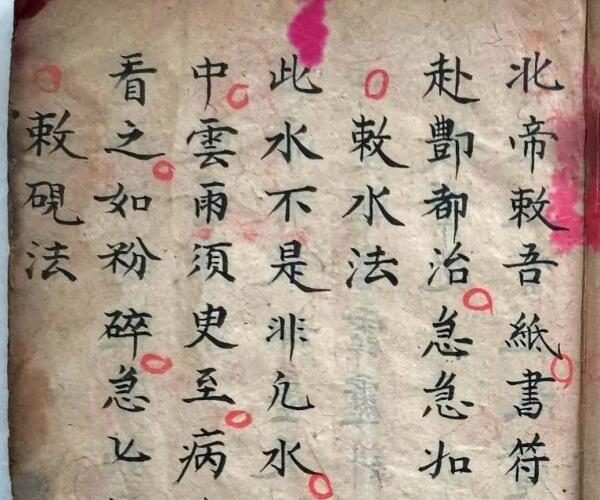 北帝敕吾紙書符
赴酆都治急急如
敕水法
此水不是非凡水
中雲雨須臾至病
看之如粉碎急匕
敕硯法